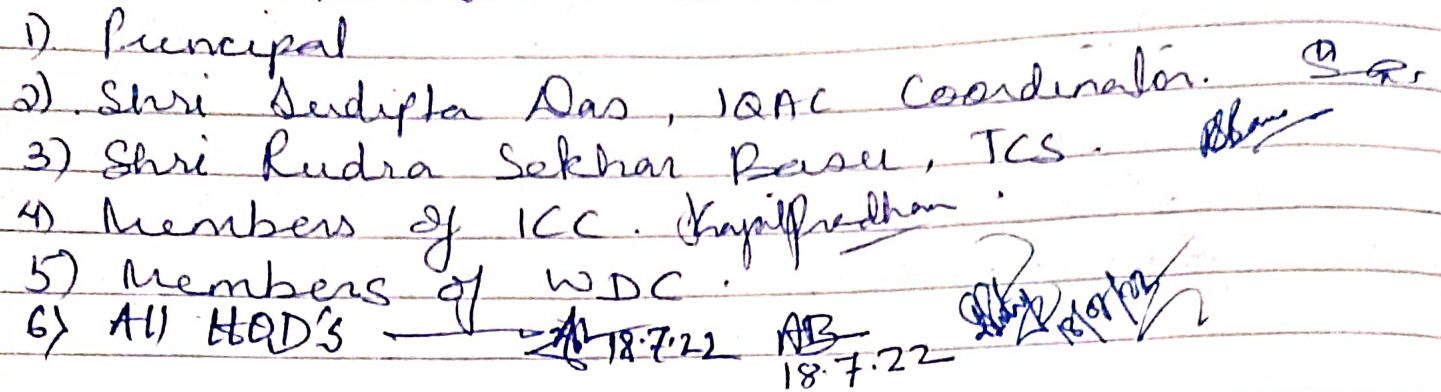 1) Principal
2). Shri Sudipta Das, IQAC Coordinator.
3) Shri Rudra Sekhar Basu, TCS.
4) Members of ICC. Kajal Pradhan
5) Members of WDC.
6) All HOD'S 18.7.22 AB 18.7.22